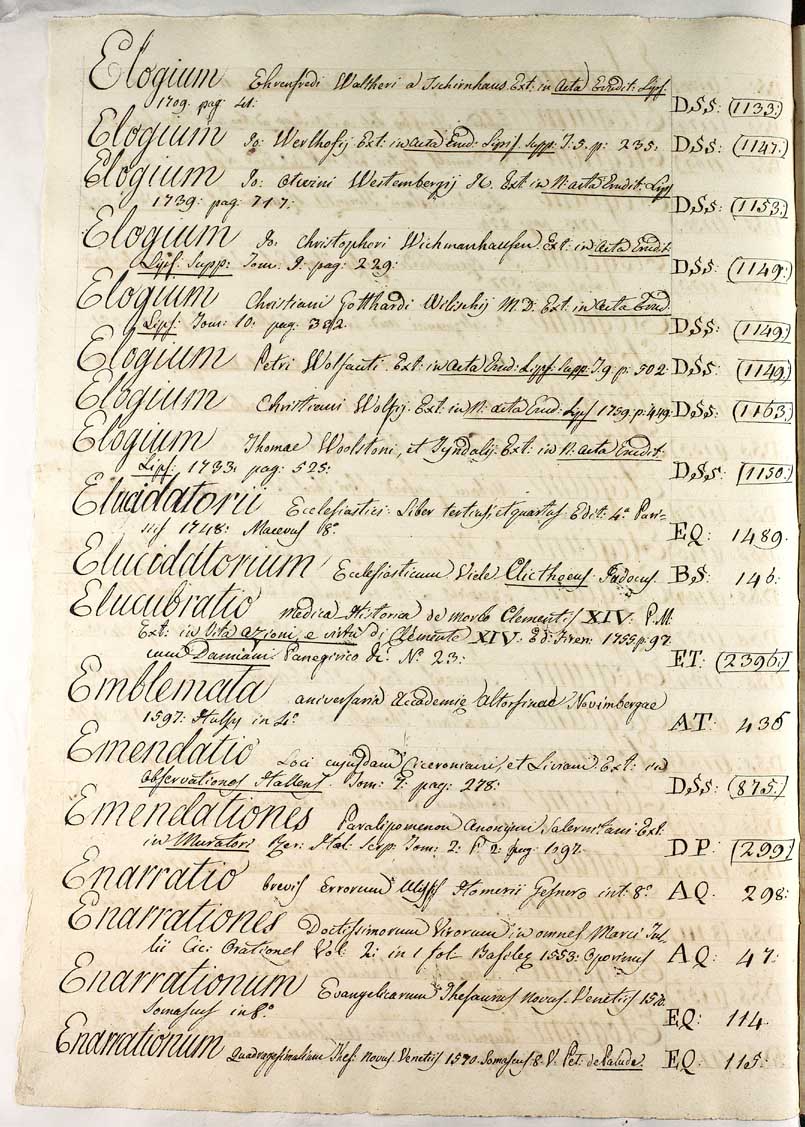 Elogium Ehrenfredi Waltheri a Tschirnhaus. Ext: in Acta Erudit: Lips:
1709. pag: 41: DSS: (1133:)
Elogium Jo: Werlhofij Ext: in Acta Erud: Lipsi: Supp: T: 5. p: 235: DSS: (1147:)
Elogium Jo: Otwini Westembergij &c. Ext in N: acta Erudit: Lips
1739: pag: 717: DSS: (1153:)
Elogium Jo: Christophori Wichmanhausen. Ext: in Acta Erudit:
Lips: Supp: Tom: 9: pag: 229: DSS: (1149:)
Elogium Christiani Gotthardi Wilischij M.D: Ext: in Acta Erud:
Lips: Tom: 10: pag: 382. DSS: (1149:)
Elogium Petri Wolfarti. Ext: in Acta Erud: Lips: Supp: T. 9. p: 502. DSS: (1149:)
Elogium Christiani Wolfij. Ext: in N: acta Erud: Lips 1739. p: 449: DSS: (1163:)
Elogium Thomae Woolstoni, et Tyndalij. Ext: in N: acta Erudit:
Lips: 1733: pag: 525: DSS: (1150:)
Elucidatorii Ecclesiastici: Liber tertius, et quartus. Edit: 4a Pari-
siis 1748: Macevus 8o EQ: 1489.
Elucidatorium Ecclesiasticum Vide Clicthoeus Jodocus. BS: 146:
Elucubratio medica Historica de morbo Clementis XIV: P.M:
Ext: in Vita azioni, e virtù di Clemente XIV: Ed: Firen: 1755 p: 97.
cum Damiani Panegirico &c: No 23: ET: (2396:)
Emblemata aniversaria Academiae Altorfinae Norimbergae
1597: in 4o AT: 436
Emendatio Loci cujusdam Ciceroniani, et Liviani. Ext: in
Observationes Hallens: Tom: 7: pag: 278: DSS: (875:)
Emendationes Paralipomenon Anonymi Salernitani Ext:
in Muratori Rer: Ital: Scrip: Tom: 2: P. 2: pag: 197: DP: (299:)
Enarratio brevis Errorum Ulyss Homerii Gesnero int: 8o AQ: 298:
Enarrationes Doctissimorum Virorum in omnes Marci Tul-
lii Cic: Orationes Vol: 2: in 1 fol Basileae 1553: Oporinus AQ: 47:
Enarrationum Evangelicarum Thesaurus novus. Venetiis 1570.
Somascus in 8o EQ: 114
Enarrationum Quadragesimalium Thes: novus Venetiis 1570. Somascus 8. V. Pet: de Palude. EQ: 115: